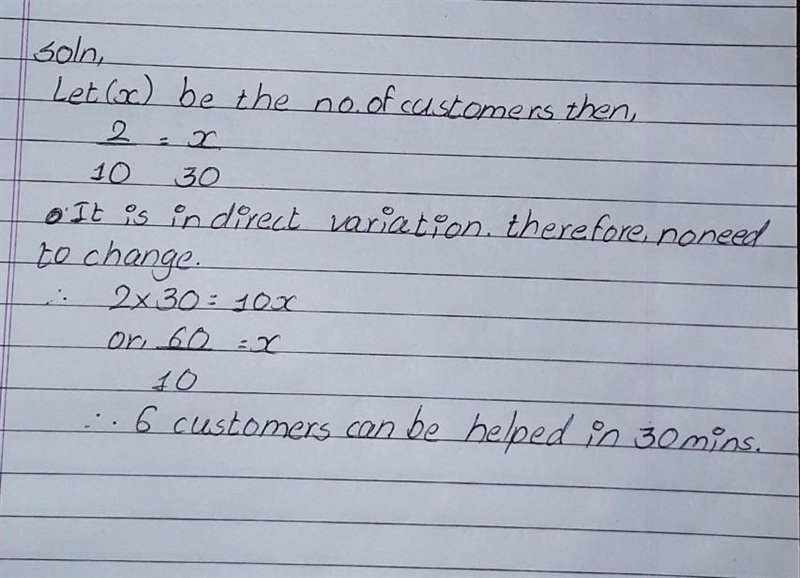 soln,
Let (x) be the no. of customers then,
2 = x
10 30
It is in direct variation. therefore, no need
to change.
∴ 2×30 = 10x
or, 60 = x
10
∴ 6 customers can be helped in 30 mins.